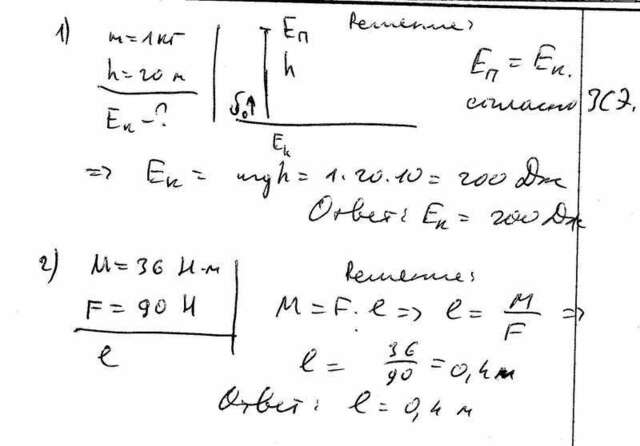 1) m = 1 кг
h = 20 м
Eк - ?
Решение:
Eп
h
υ₀↑
Eк
Eп = Eк.
согласно ЗСЭ.
=> Eк = mgh = 1·20·10 = 200 Дж
Ответ: Eк = 200 Дж
2) M = 36 Н·м
F = 90 Н
l
Решение:
M = F·l => l = M/F =>
l = 36/90 = 0,4 м
Ответ: l = 0,4 м